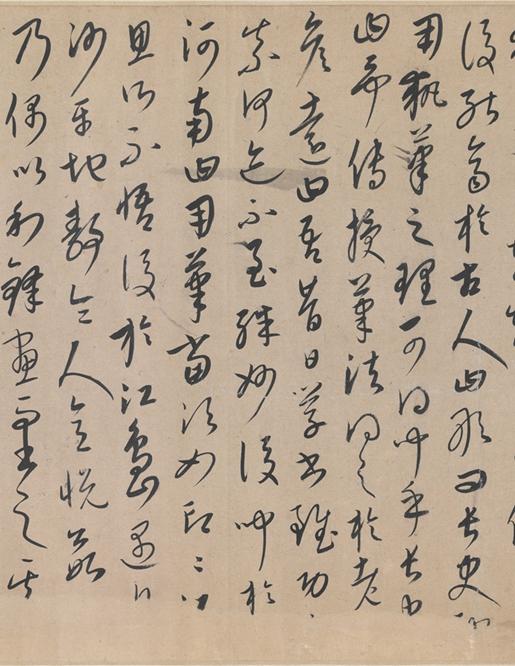 後能齊於古人曰敢問長史
用執筆之理可得聞乎長史
曰予傳授筆法得之於老
彥遠曰吾昔日學書雖功
奈何迹不至殊妙後聞於
河南曰用筆當須如印々
思而不悟後於江島遇
沙平地靜令人意悅欲
乃偶以利鋒畫而書之其